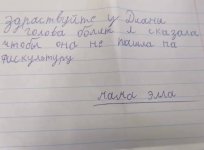 здраствуйте у Диана
голова болит я сказала
чтобы она не пашла на
фискультуру
мама элла